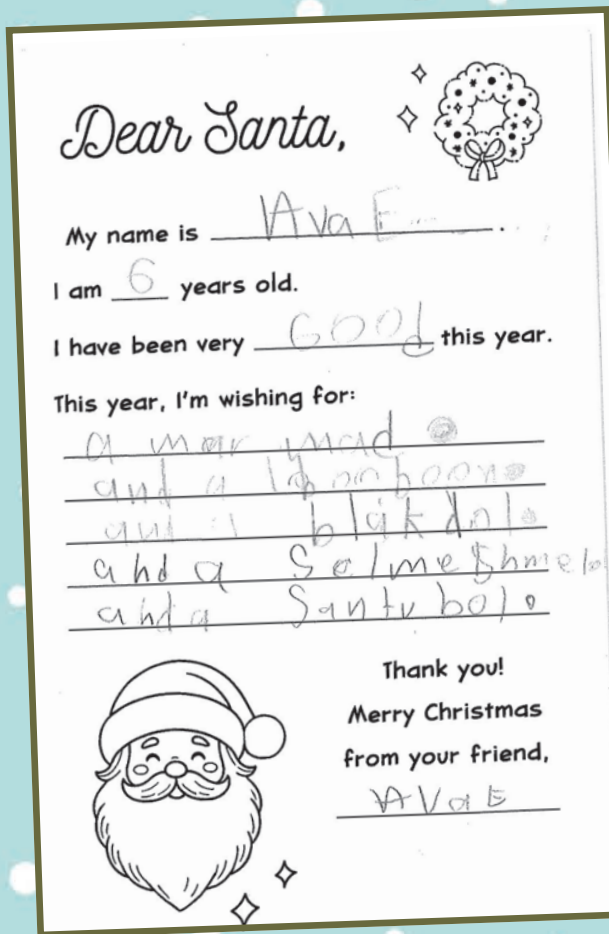 Dear Santa,
My name is Ava E
I am 6 years old.
I have been very Good this year.
This year, I'm wishing for:
a mar mad
and a
and a blak dol
and a
and a Santu bolo
Thank you!
Merry Christmas
from your friend,
Ava E